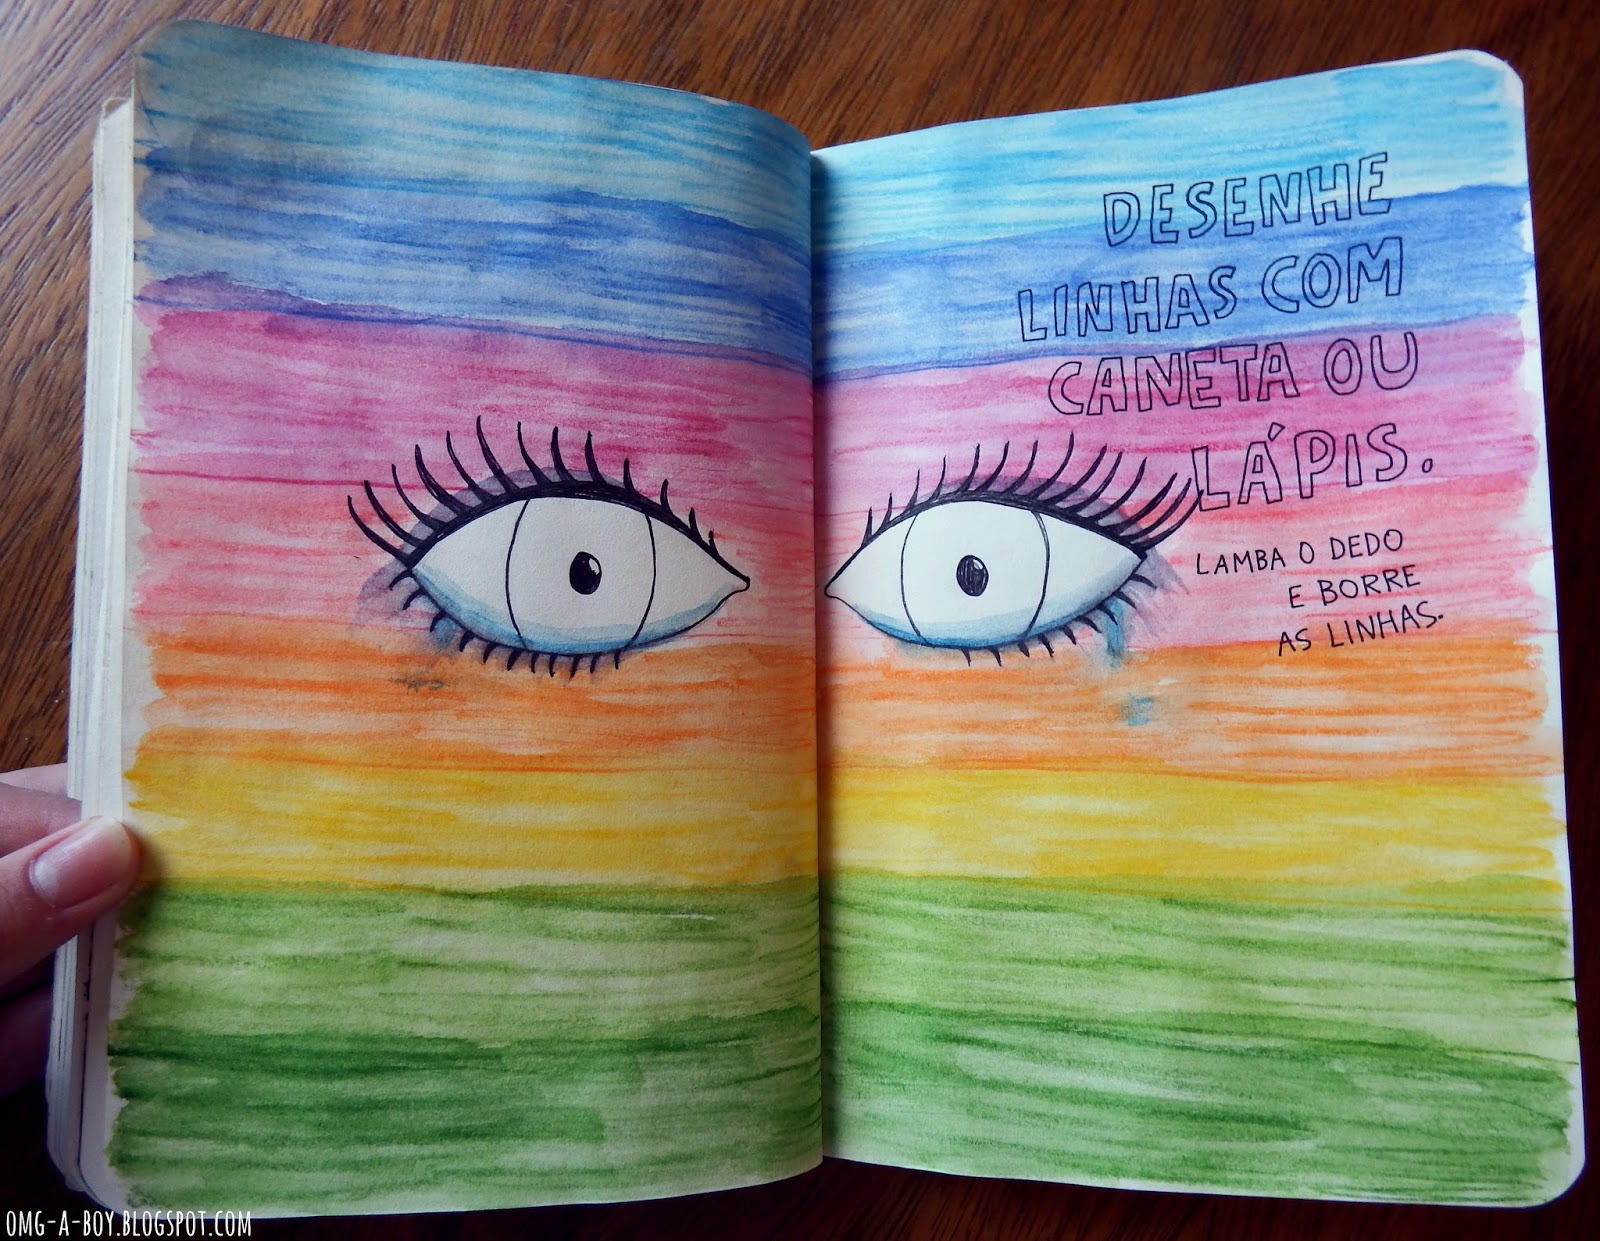 DESENHE
LINHAS COM
CANETA OU
LÁPIS.
LAMBA O DEDO
E BORRE
AS LINHAS.
OMG-A-BOY.BLOGSPOT.COM